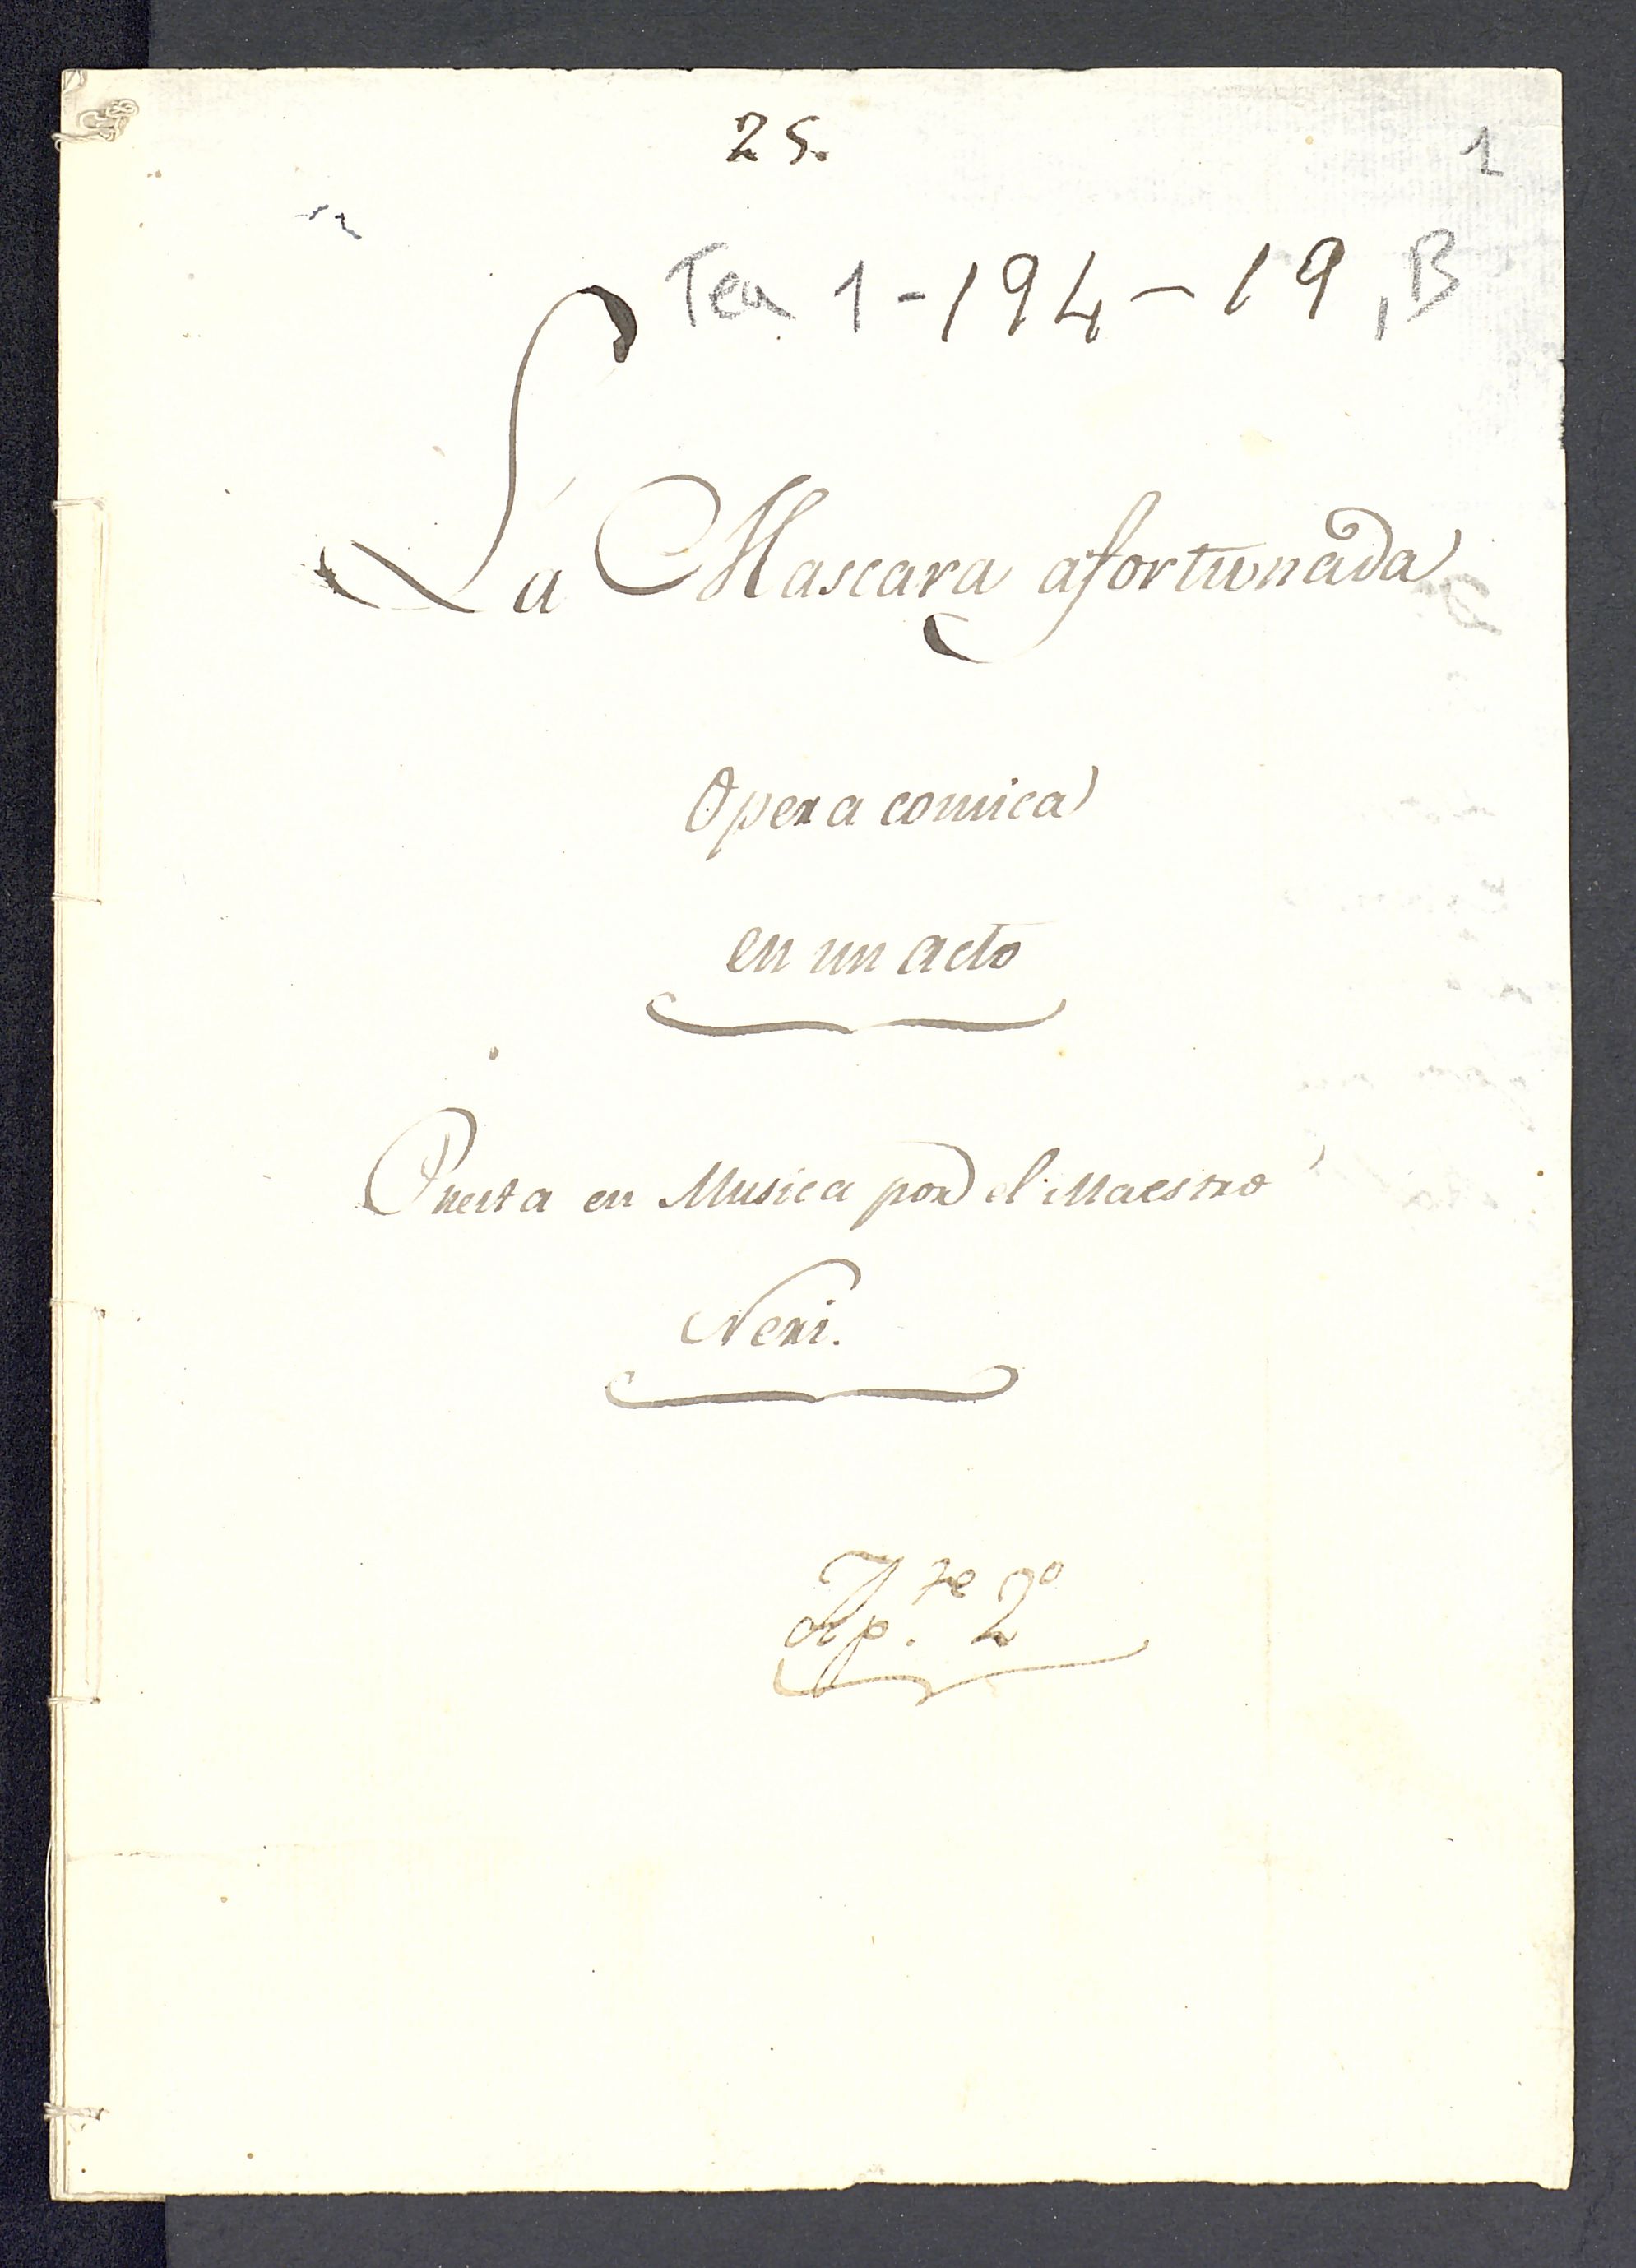 25.
1
Tea 1-194-19, B
La Mascara afortunada
Opera comica
en un acto
Puesta en Musica por el Maestro
Neri.
Ap.te 2º